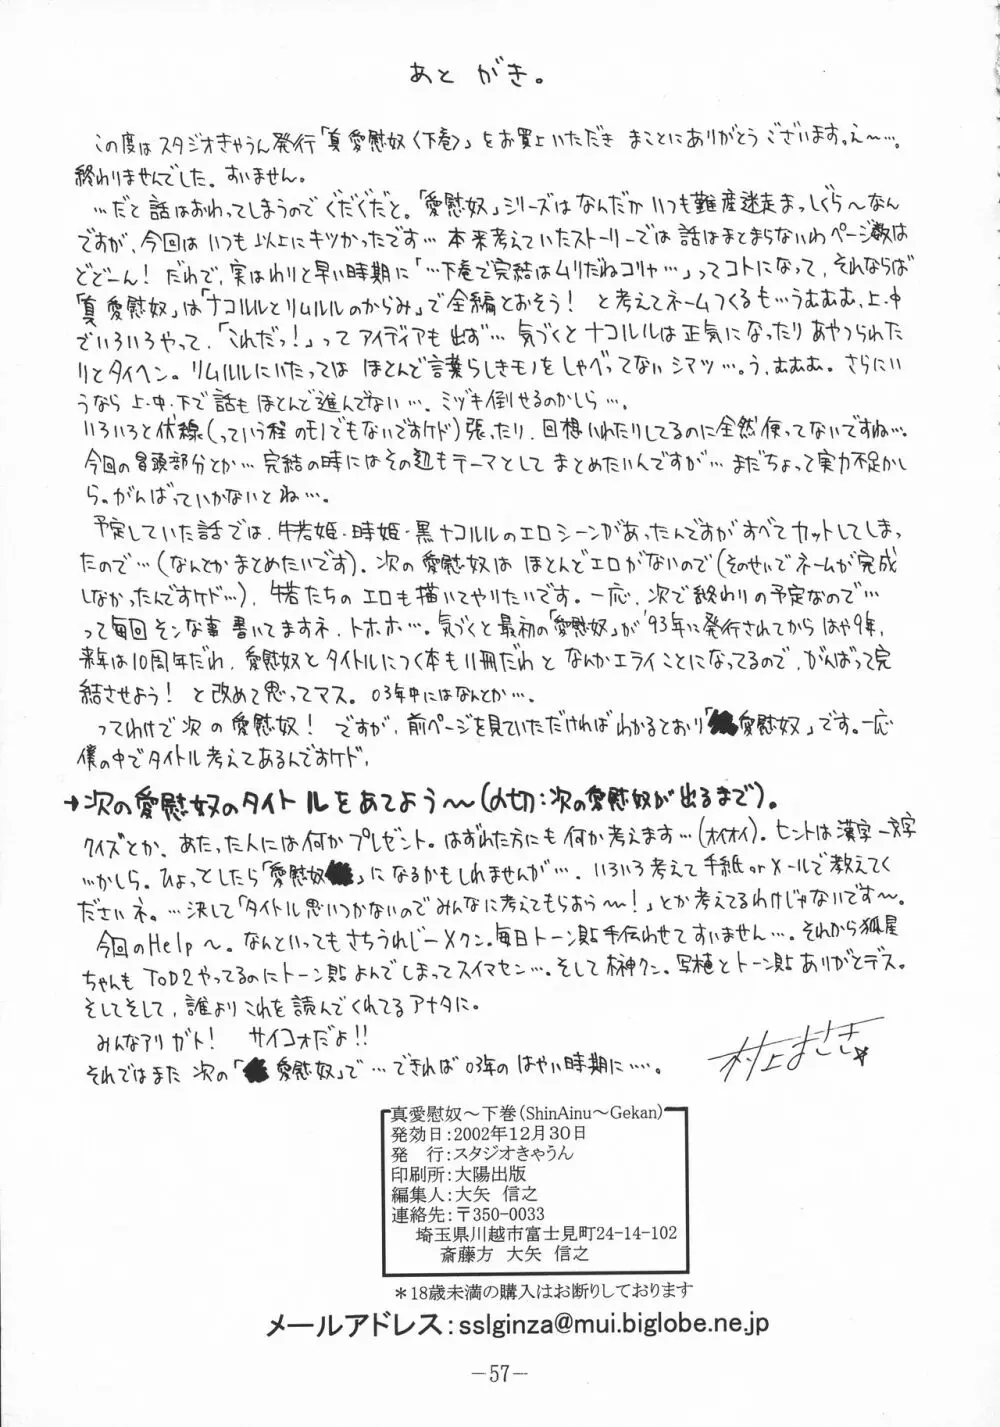 あとがき。
この度はスタジオきゃうん発行「真愛慰奴〈下巻〉」をお買上いただき まことにありがとうございます。え〜…。
終わりませんでした。すいません。
…だと話はおわってしまうのでぐだぐだと。「愛慰奴」シリーズはなんだかいつも難産迷走まっしぐら〜なん
ですが、今回はいつも以上にキツかったです… 本来考えていたストーリーでは話はまとまらないわページ数は
どどーん! だわで、実はわりと早い時期に「…下巻で完結はムリだねコリャ…」ってコトになって、それならば
「真愛慰奴」は「ナコルルとリムルルのからみ」で全編とおそう! と考えてネームつくるも…うむむむ、上・中
でいろいろやって、「これだっ!」ってアイディアも出ず… 気づくとナコルルは正気になったりあやつられた
りとタイヘン。リムルルにいたっては ほとんど言葉らしきモノをしゃべってないシマツ…。う、むむむ。さらにい
うなら上・中・下で話もほとんど進んでない…、ミヅキ倒せるのかしら…、
いろいろと伏線(っていう程のモノでもないですケド)張ったり、回想いれたりしてるのに全然使ってないですね…。
今回の冒頭部分とか… 完結の時にはその辺もテーマとして まとめたいんですが… まだちょって実力不足かし
ら。がんばっていかないとね…。
予定していた話では、牛若姫・時姫・黒ナコルルのエロシーンがあったんですがすべてカットしてしまっ
たので…(なんとかまとめたいです)。次の愛慰奴は ほとんどエロがないので(そのせいでネームが完成
しなかったんですケド…)、牛若たちのエロも描いてやりたいです。一応、次で終わりの予定なので…
って毎回そンな事 書いてますネ、トホホ…。気づくと最初の「愛慰奴」が'93年に発行されてから はや9年、
来年は10周年だわ、愛慰奴とタイトルにつく本も11冊だわと なんかエライことになってるので、がんばって完
結させよう! と改めて思ってマス。03年中にはなんとか…、
ってわけで次の愛慰奴! ですが、前ページを見ていただければわかるとおり「愛慰奴」です。一応
僕の中でタイトル考えてあるんですケド、
→次の愛慰奴のタイトルをあてよう〜(〆切:次の愛慰奴が出るまで)。
クイズとか、あたった人には何かプレゼント。はずれた方にも何か考えます…(オイオイ)。ヒントは漢字一文字
…かしら。ひょっとしたら「愛慰奴」になるかもしれませんが…、いろいろ考えて手紙orメールで教えてく
ださいネ。…決して「タイトル思いつかないのでみんなに考えてもらおう〜!」とか考えてるわけじゃないです〜。
今回のHelp〜。なんといってもさちうれじーXクン。毎日トーン貼手伝わせてすいません…。それから狐星
ちゃんもToD2やってるのにトーン貼よんでしまってスイマセン…。そして榊神クン。写植とトーン貼ありがとデス。
そしてそして、誰よりこれを読んでくれてるアナタに。
みんなアリガト! サイコォだよ!!
それではまた 次の「愛慰奴」で…できれば03年のはやい時期に……。
村上まさき
真愛慰奴〜下巻(ShinAinu〜Gekan)
発効日:2002年12月30日
発 行:スタジオきゃうん
印刷所:大陽出版
編集人:大矢 信之
連絡先:〒350-0033
埼玉県川越市富士見町24-14-102
斎藤方 大矢 信之
*18歳未満の購入はお断りしております
メールアドレス:sslginza@mui.biglobe.ne.jp
-57-